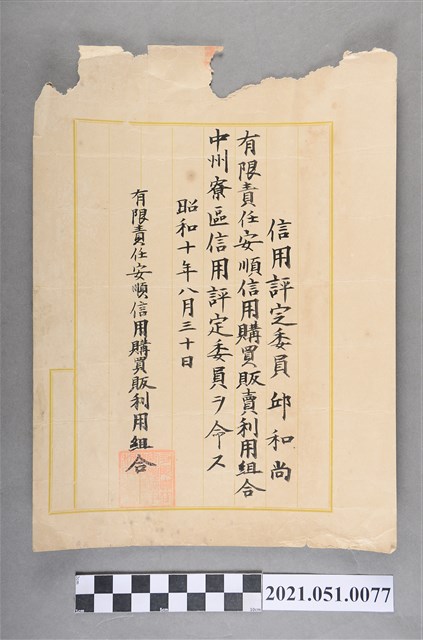 信用評定委員 邱和尚
有限責任安順信用購買販賣利用組合
中州寮區信用評定委員ヲ命ス
昭和十年八月三十日
有限責任安順信用購買販利用組合
2021.051.0077